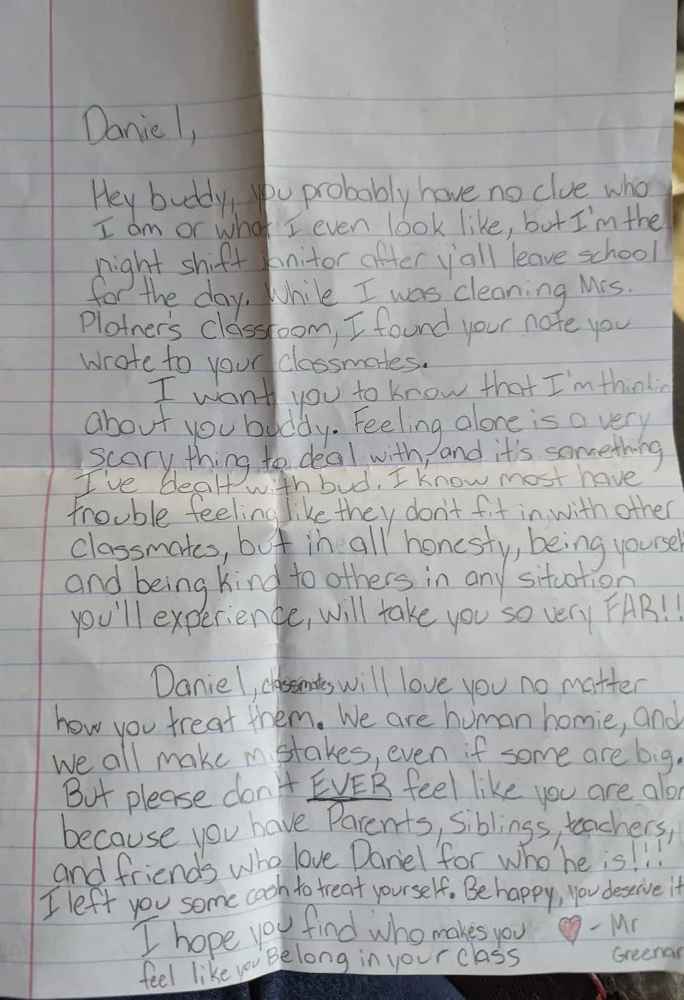 Daniel,
Hey buddy, you probably have no clue who
I am or what I even look like, but I'm the
night shift janitor after y'all leave school
for the day. While I was cleaning Mrs.
Plotner's classroom, I found your note you
wrote to your classmates.
I want you to know that I'm thinkin
about you buddy. Feeling alone is a very
scary thing to deal with, and it's something
I've dealt with bud. I know most have
trouble feeling like they don't fit in with other
classmates, but in all honesty, being yoursel
and being kind to others in any situation
you'll experience, will take you so very FAR!!
Daniel, classmates will love you no matter
how you treat them. We are human homie, and
we all make mistakes, even if some are big.
But please don't EVER feel like you are alon
because you have Parents, siblings, teachers,
and friends who love Daniel for who he is!!!
I left you some cash to treat yourself. Be happy, you deserve it
I hope you find who makes you ♥ - Mr
feel like you Belong in your class Greenar